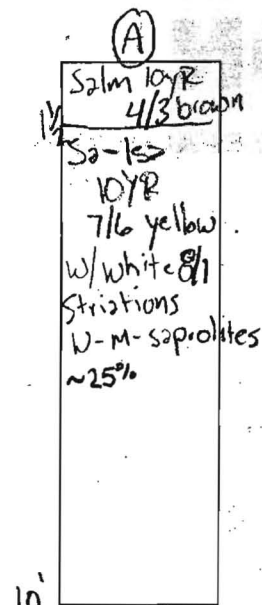 A
Salm 10yR
4/3 brown
1 1/2
Sa-lsa
10YR
7/6 yellow
w/ white 8/1
Striations
W-M-saprolites
~25%
10'